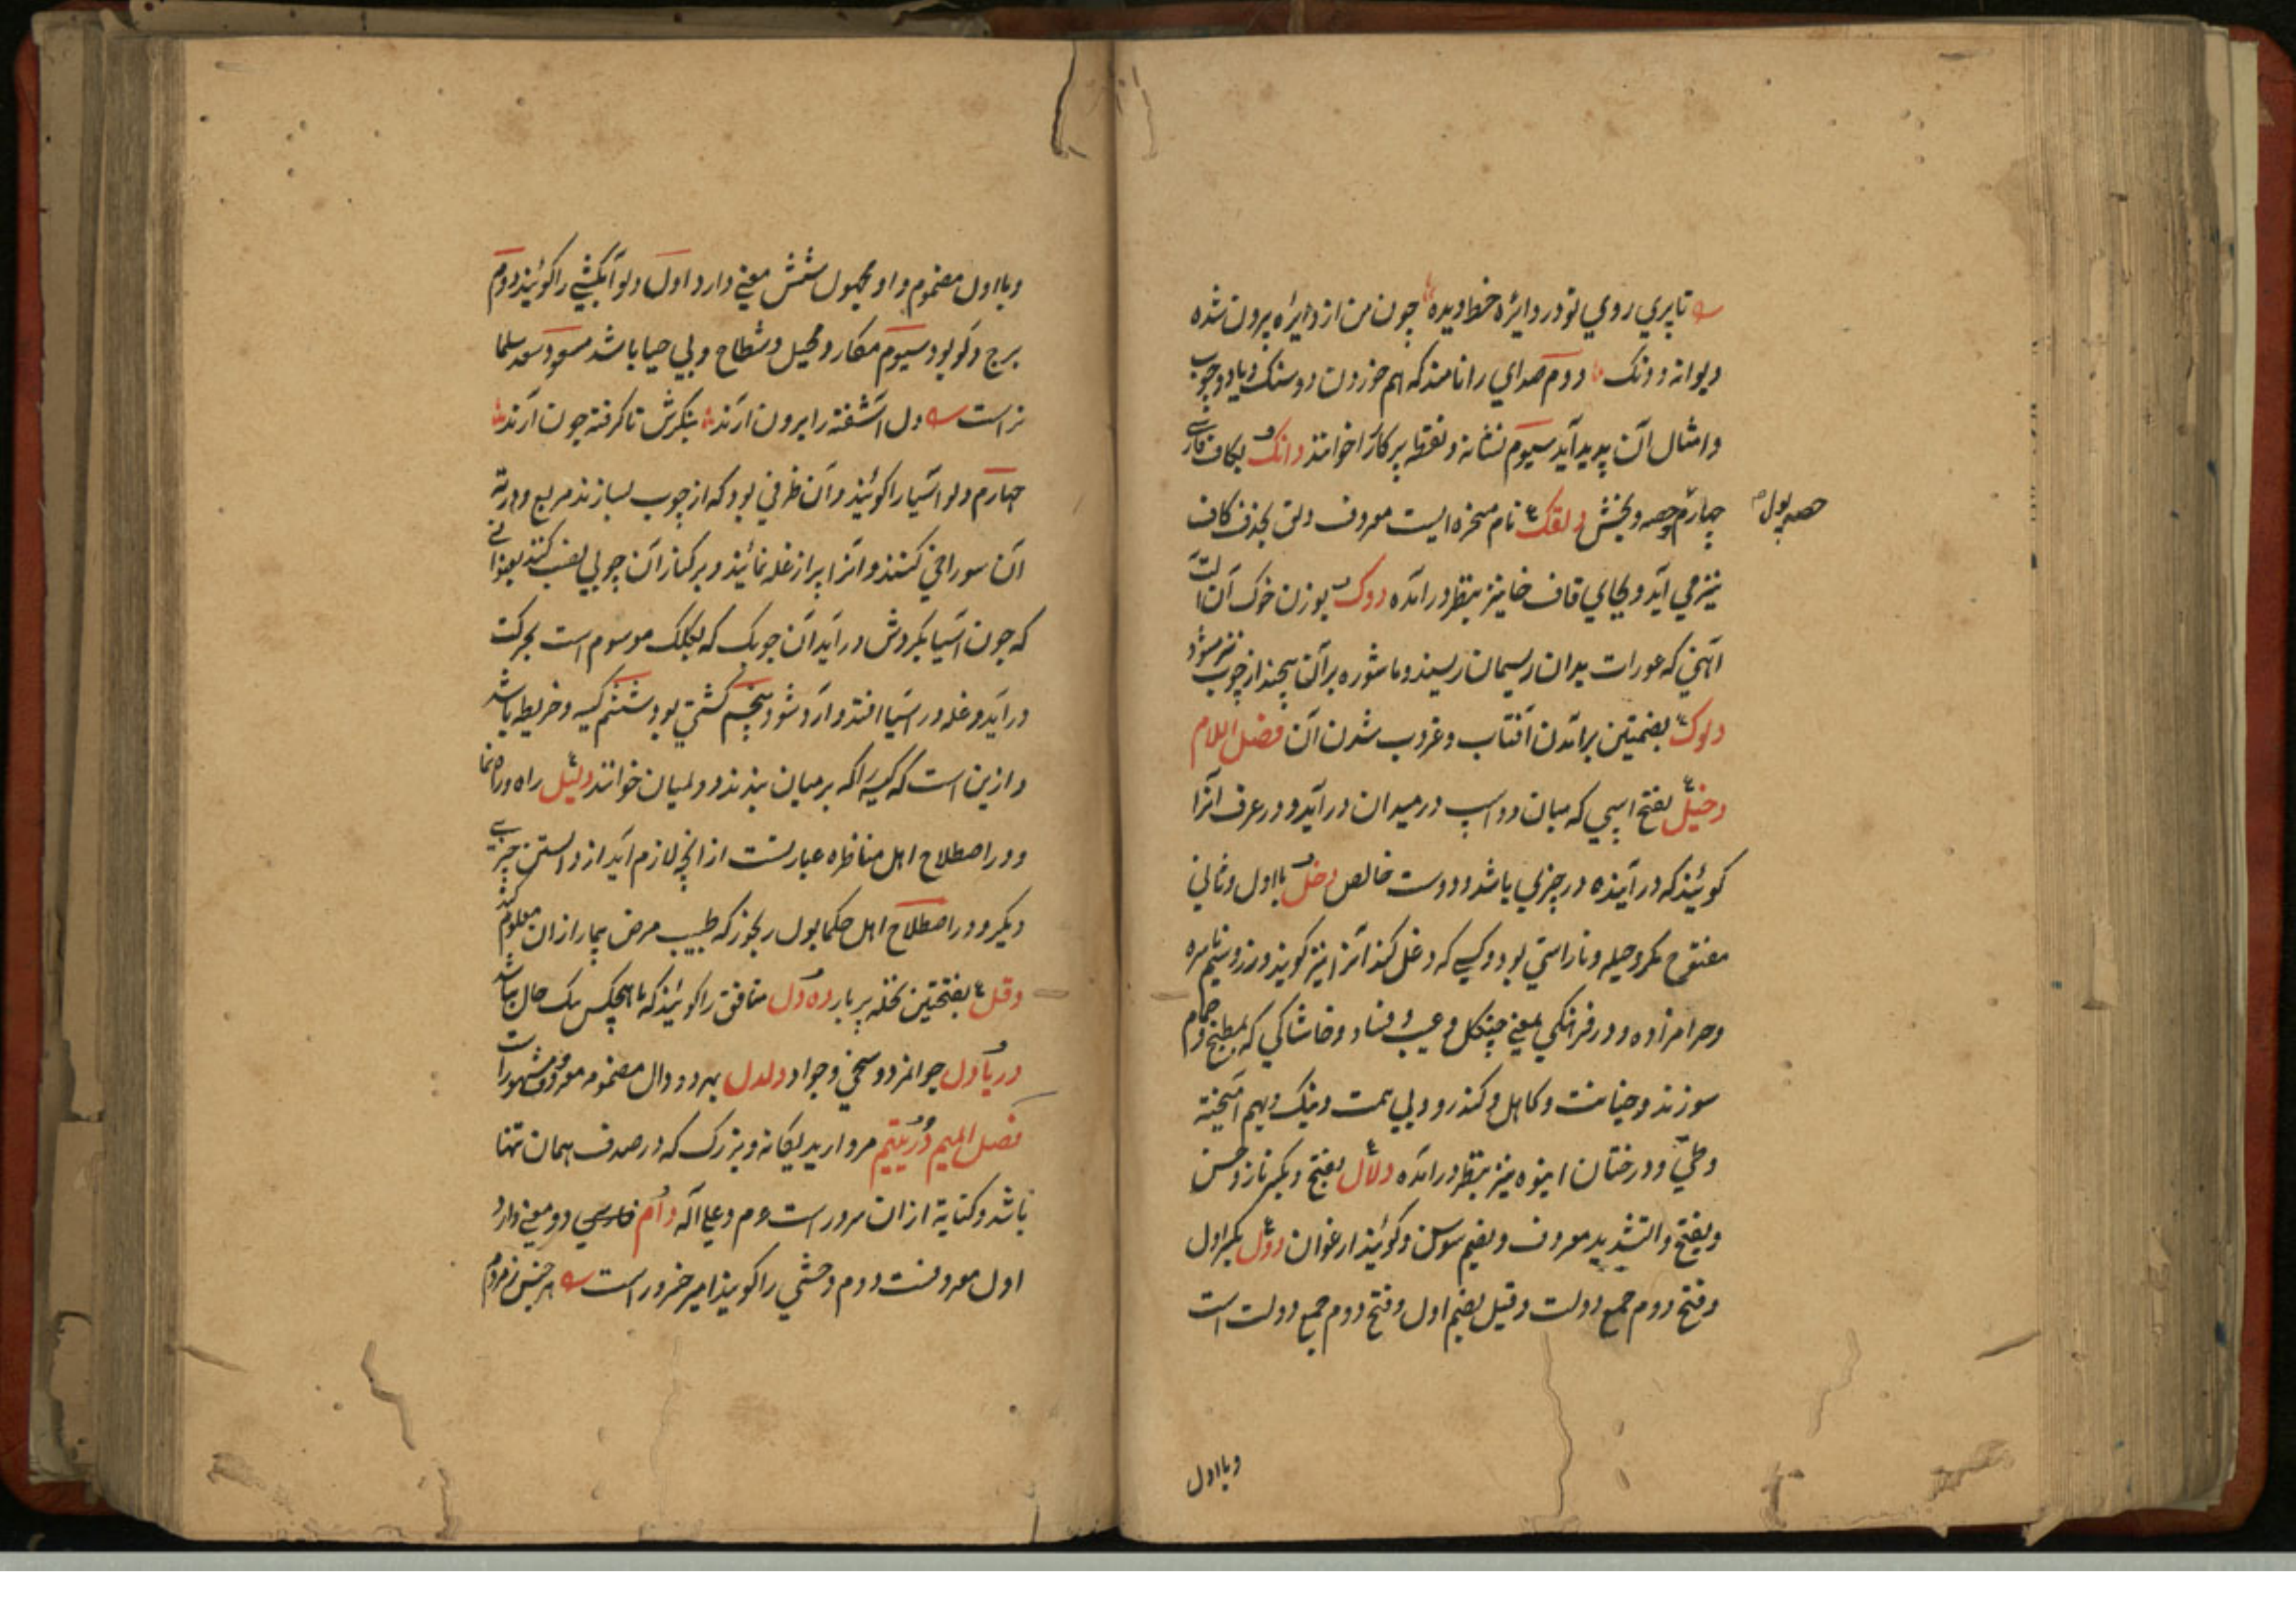 تا پری روی تو در دایرهٔ خط دیده چون من از دایره بیرون شده
دیوانه و دنک دوم صدای را نامند که از بهم خوردن دو سنک و یا دو چوب
و امثال آن پدید آید سیوم نشانه و نقطه پرکار را خوانند دانک بکاف فارسی
چهارم حصه و بخش دلقک نام مسخره ایست معروف دلق بحذف کاف
حصه پول
نیز می آید و بجای قاف خا نیز بنظر در آمده دوک بوزن خوک آن آلت
آهنی که عورات بدان ریسمان ریسند و ماشوره بر آن پیچند از چوب نیز میشود
دلوک بضمتین بر آمدن آفتاب و غروب شدن آن فصل اللام
دخیل بفتح اسپی که میان دو اسپ در میدان در آید و در عرف آنرا
کویند که در آینده در چیزی باشد و دوست خالص دغل با اول و ثانی
مفتوح مکر و حیله و ناراستی بود و کسی که دغل کند آنرا نیز کویند و زر و سیم ناسره
و حرامزاده و در فرهنگی بمعنی جنکل و عیب و فساد و خاشاکی که بمطبخ و حمام
سوزند و خیانت و کاهل و کندرو و بی همت و نیک و بهم آمیخته
و درختان انبوه نیز بنظر در آمده دلال بفتح و بکسر ناز و حسن
و بفتح و التشدید معروف و بضم سوسن و کویند ارغوان دول بکسر اول
و فتح دوم جمع دولت و قیل بضم اول و فتح دوم جمع دولت است
و با اول
و با اول مضموم و او مجهول شش معنی دارد اول دلو آبکشی را کویند دوم
برج دلو بود سیوم مکار و محیل و شطاح و بی حیا باشد مسعود سعد سلمان
راست دل آشفته را برون آرند بنکرش تا کرفته چون آرند
چهارم دلو آسیا را کویند و آن ظرفی بود که از چوب بسازند مربع و در ته
آن سوراخی کنند و آنرا پر از غله نمایند و بر کنار آن چوبی نصب کنند بعنوانی
که چون آسیا بکردش در آید آن چوبک که بلکلک موسوم است بحرکت
در آید و غله در آسیا افتد و آرد شود پنجم کشتی بود ششم کیسه و خریطه باشد
و ازین است که کیسه را که بر میان بندند دولمیان خوانند دلیل راه و راهنما
و در اصطلاح اهل مناظره عبارتست از آنچه لازم آید از دانستن چیزی
دیکر و در اصطلاح اهل حکما بول رنجور که طبیب مرض بیمار از آن معلوم کند
دقل بفتحتین نخله پر بار ده دل منافق را کویند که با هیچکس یک حال نباشد
دریادل جوانمرد و سخی و جواد دلدل بهر دو دال مضمومه معروف و مشهور است
فصل المیم در یتیم مروارید یکانه و بزرک که در صدف همان تنها
باشد و کنایة از آن سرور است عم و علی آله دام فارسی دو معنی دارد
اول معروفست دوم وحشی را کویند امیر خسرو راست هر جنس ز مردم